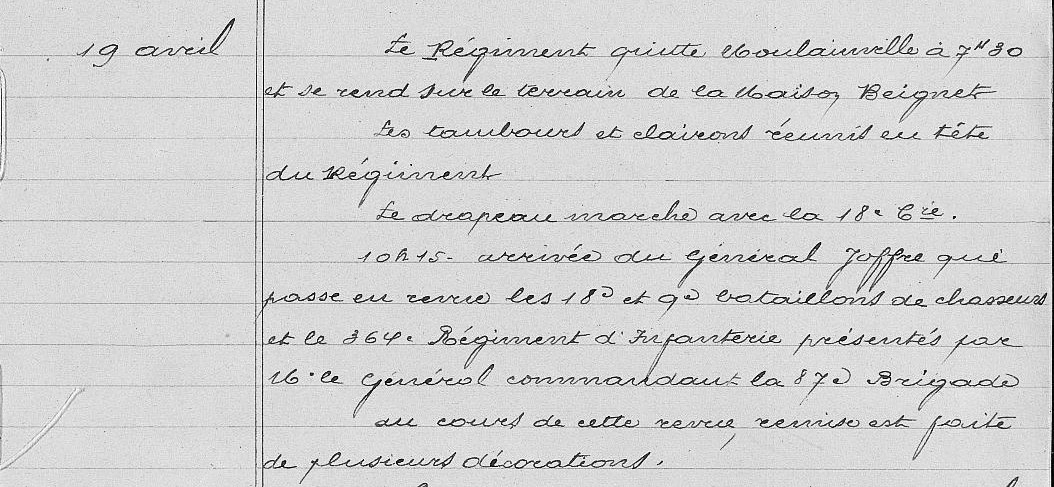 19 avril
Le Régiment quitte Moulainville à 7H30
et se rend sur le terrain de la Maison Beignet
Les tambours et clairons réunis en tête
du Régiment
Le drapeau marche avec la 18e Cie.
10h15 - arrivée du Général Joffre qui
passe en revue les 18e et 9e bataillons de chasseurs
et le 364e Régiment d'Infanterie présentés par
M. le Général commandant la 87e Brigade
au cours de cette revue, remise est faite
de plusieurs décorations.